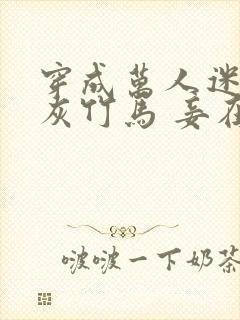 穿成萬人迷
灰竹馬 姜在
啵啵一下奶茶